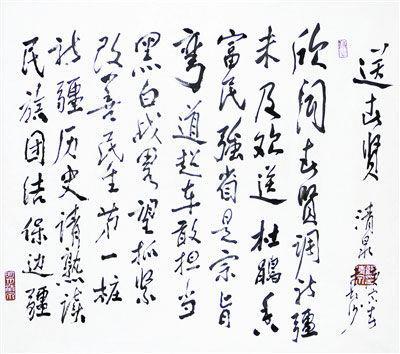 送春贤
清泉
欣闻春贤调新疆
未及欢送杜鹃香
富民强省是宗旨
弯道超车敢担当
黑白战略望抓紧
改善民生第一桩
新疆历史请熟读
民族团结保边疆